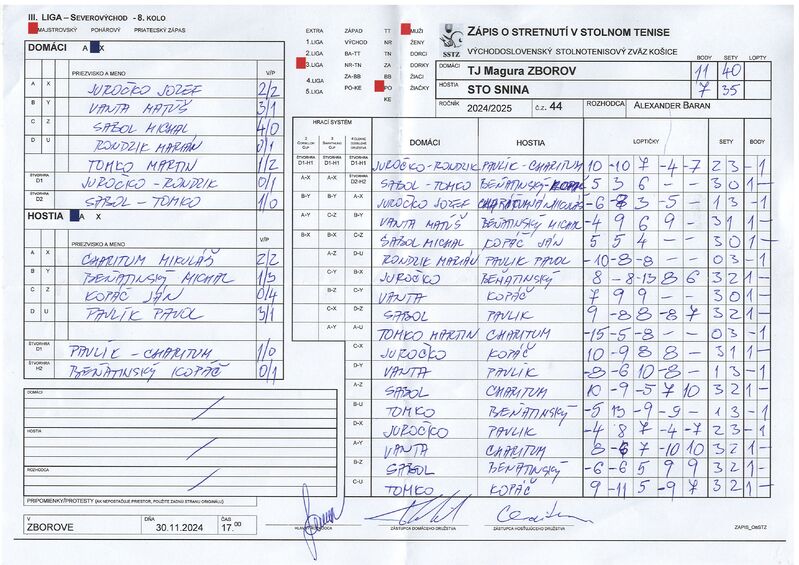 III. LIGA – SEVEROVÝCHOD - 8. KOLO
MAJSTROVSKÝ POHÁROVÝ PRIATEĽSKÝ ZÁPAS
DOMÁCI A X
PRIEZVISKO A MENO V/P
A X JUROČKO JOZEF 2/2
B Y VANTA MATÚŠ 3/1
C Z SABOL MICHAL 4/0
D U RONDZIK MARIÁN 0/1
TOMKO MARTIN 1/2
ŠTVORHRA D1 JUROČKO - RONDZIK 0/1
ŠTVORHRA D2 SABOL - TOMKO 1/0
HOSTIA A X
PRIEZVISKO A MENO V/P
A X CHARITUM MIKULÁŠ 2/2
B Y BEŇATINSKÝ MICHAL 1/3
C Z KOPÁČ JÁN 0/4
D U PAVLÍK PAVOL 3/1
ŠTVORHRA PAVLÍK - CHARITUM 1/0
ŠTVORHRA H2 BEŇATINSKÝ KOPÁČ 0/1
DOMÁCI
HOSTIA
ROZHODCA
PRIPOMIENKY/PROTESTY (AK NEPOSTAČUJE PRIESTOR, POUŽITE ZADNÚ STRANU ORIGINÁLU)
V ZBOROVE DŇA 30.11.2024 ČAS 17.00
EXTRA ZÁPAD TT MUŽI
1.LIGA VÝCHOD NR ŽENY
2.LIGA BA-TT TN DORCI
3.LIGA NR-TN ZA DORKY
4.LIGA ZA-BB BB ŽIACI
5.LIGA PO-KE PO ŽIAČKY
KE
SSTZ
ZÁPIS O STRETNUTÍ V STOLNOM TENISE
VÝCHODOSLOVENSKÝ STOLNOTENISOVÝ ZVÄZ KOŠICE
BODY SETY LOPTY
DOMÁCI TJ Magura ZBOROV 11 40
HOSTIA STO SNINA 7 35
ROČNÍK 2024/2025 č.z. 44 ROZHODCA ALEXANDER BARAN
HRACÍ SYSTÉM DOMÁCI HOSTIA LOPTIČKY SETY BODY
JUROČKO-RONDZIK PAVLÍK-CHARITUM 10 -10 7 -4 -7 2 3 -1
SABOL - TOMKO BEŇATINSKÝ-KOPÁČ 5 3 6 – – 3 0 1 –
JUROČKO JOZEF CHARITUM MIKULÁŠ -6 -8 3 -5 – 1 3 -1
VANTA MATÚŠ BEŇATINSKÝ MICHAL -4 9 6 9 3 1 1 –
SABOL MICHAL KOPÁČ JÁN 5 5 4 – – 3 0 1 –
RONDZIK MARIÁN PAVLIK PAVOL -10 -8 -8 – – 0 3 -1
JUROČKO BEŇATINSKÝ 8 -8 -13 8 6 3 2 1 –
VANTA KOPÁČ 7 9 9 – – 3 0 1 –
SABOL PAVLIK 9 -8 8 -8 7 3 2 1 –
TOMKO MARTIN CHARITUM -15 -5 -8 – – 0 3 -1
JUROČKO KOPÁČ 10 -9 8 8 – 3 1 1 –
VANTA PAVLIK -8 -6 10 -8 – 1 3 -1
SABOL CHARITUM 10 -9 -5 7 10 3 2 1 –
TOMKO BEŇATINSKÝ -5 13 -9 -9 – 1 3 -1
JUROČKO PAVLIK -4 8 7 -4 -7 2 3 -1
VANTA CHARITUM 8 -6 7 -10 10 3 2 1 –
SABOL BEŇATINSKÝ -6 -6 5 9 9 3 2 1 –
TOMKO KOPÁČ 9 -11 5 -9 7 3 2 1 –
ZÁSTUPCA DOMÁCEHO DRUŽSTVA ZÁSTUPCA HOSŤUJÚCEHO DRUŽSTVA ZAPIS_OaSTZ